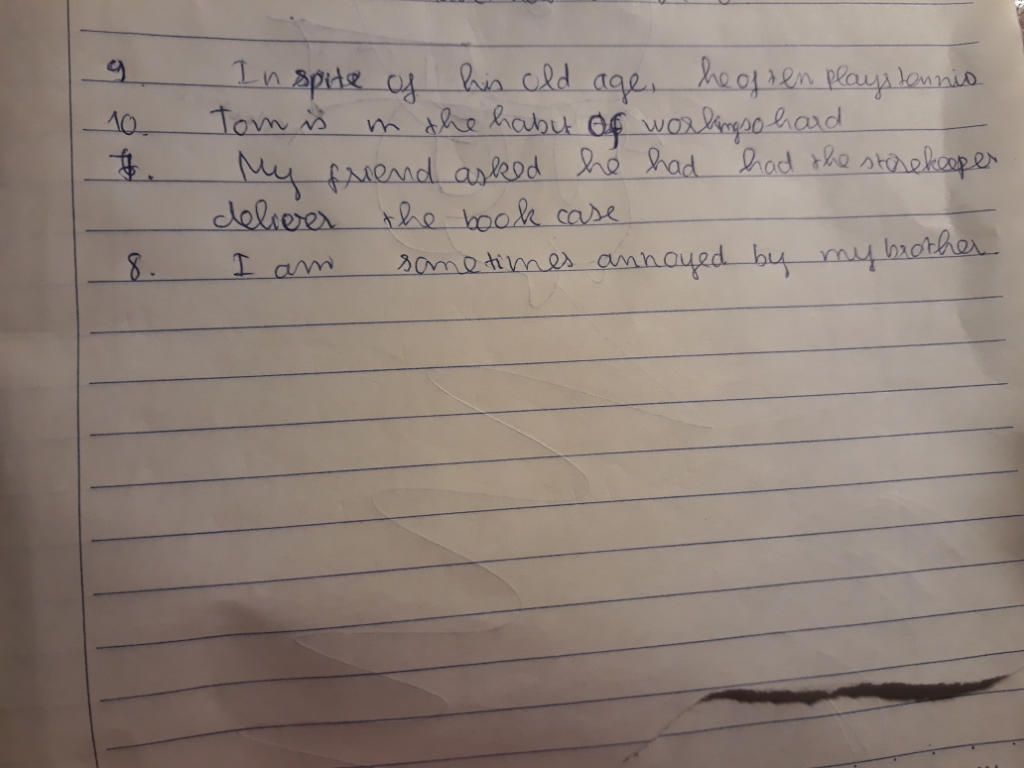 9. In spite of his old age, he often plays tennis
10. Tom is in the habit of working so hard
7. My friend asked he had had the storekeeper
deliver the book case
8. I am sometimes annoyed by my brother